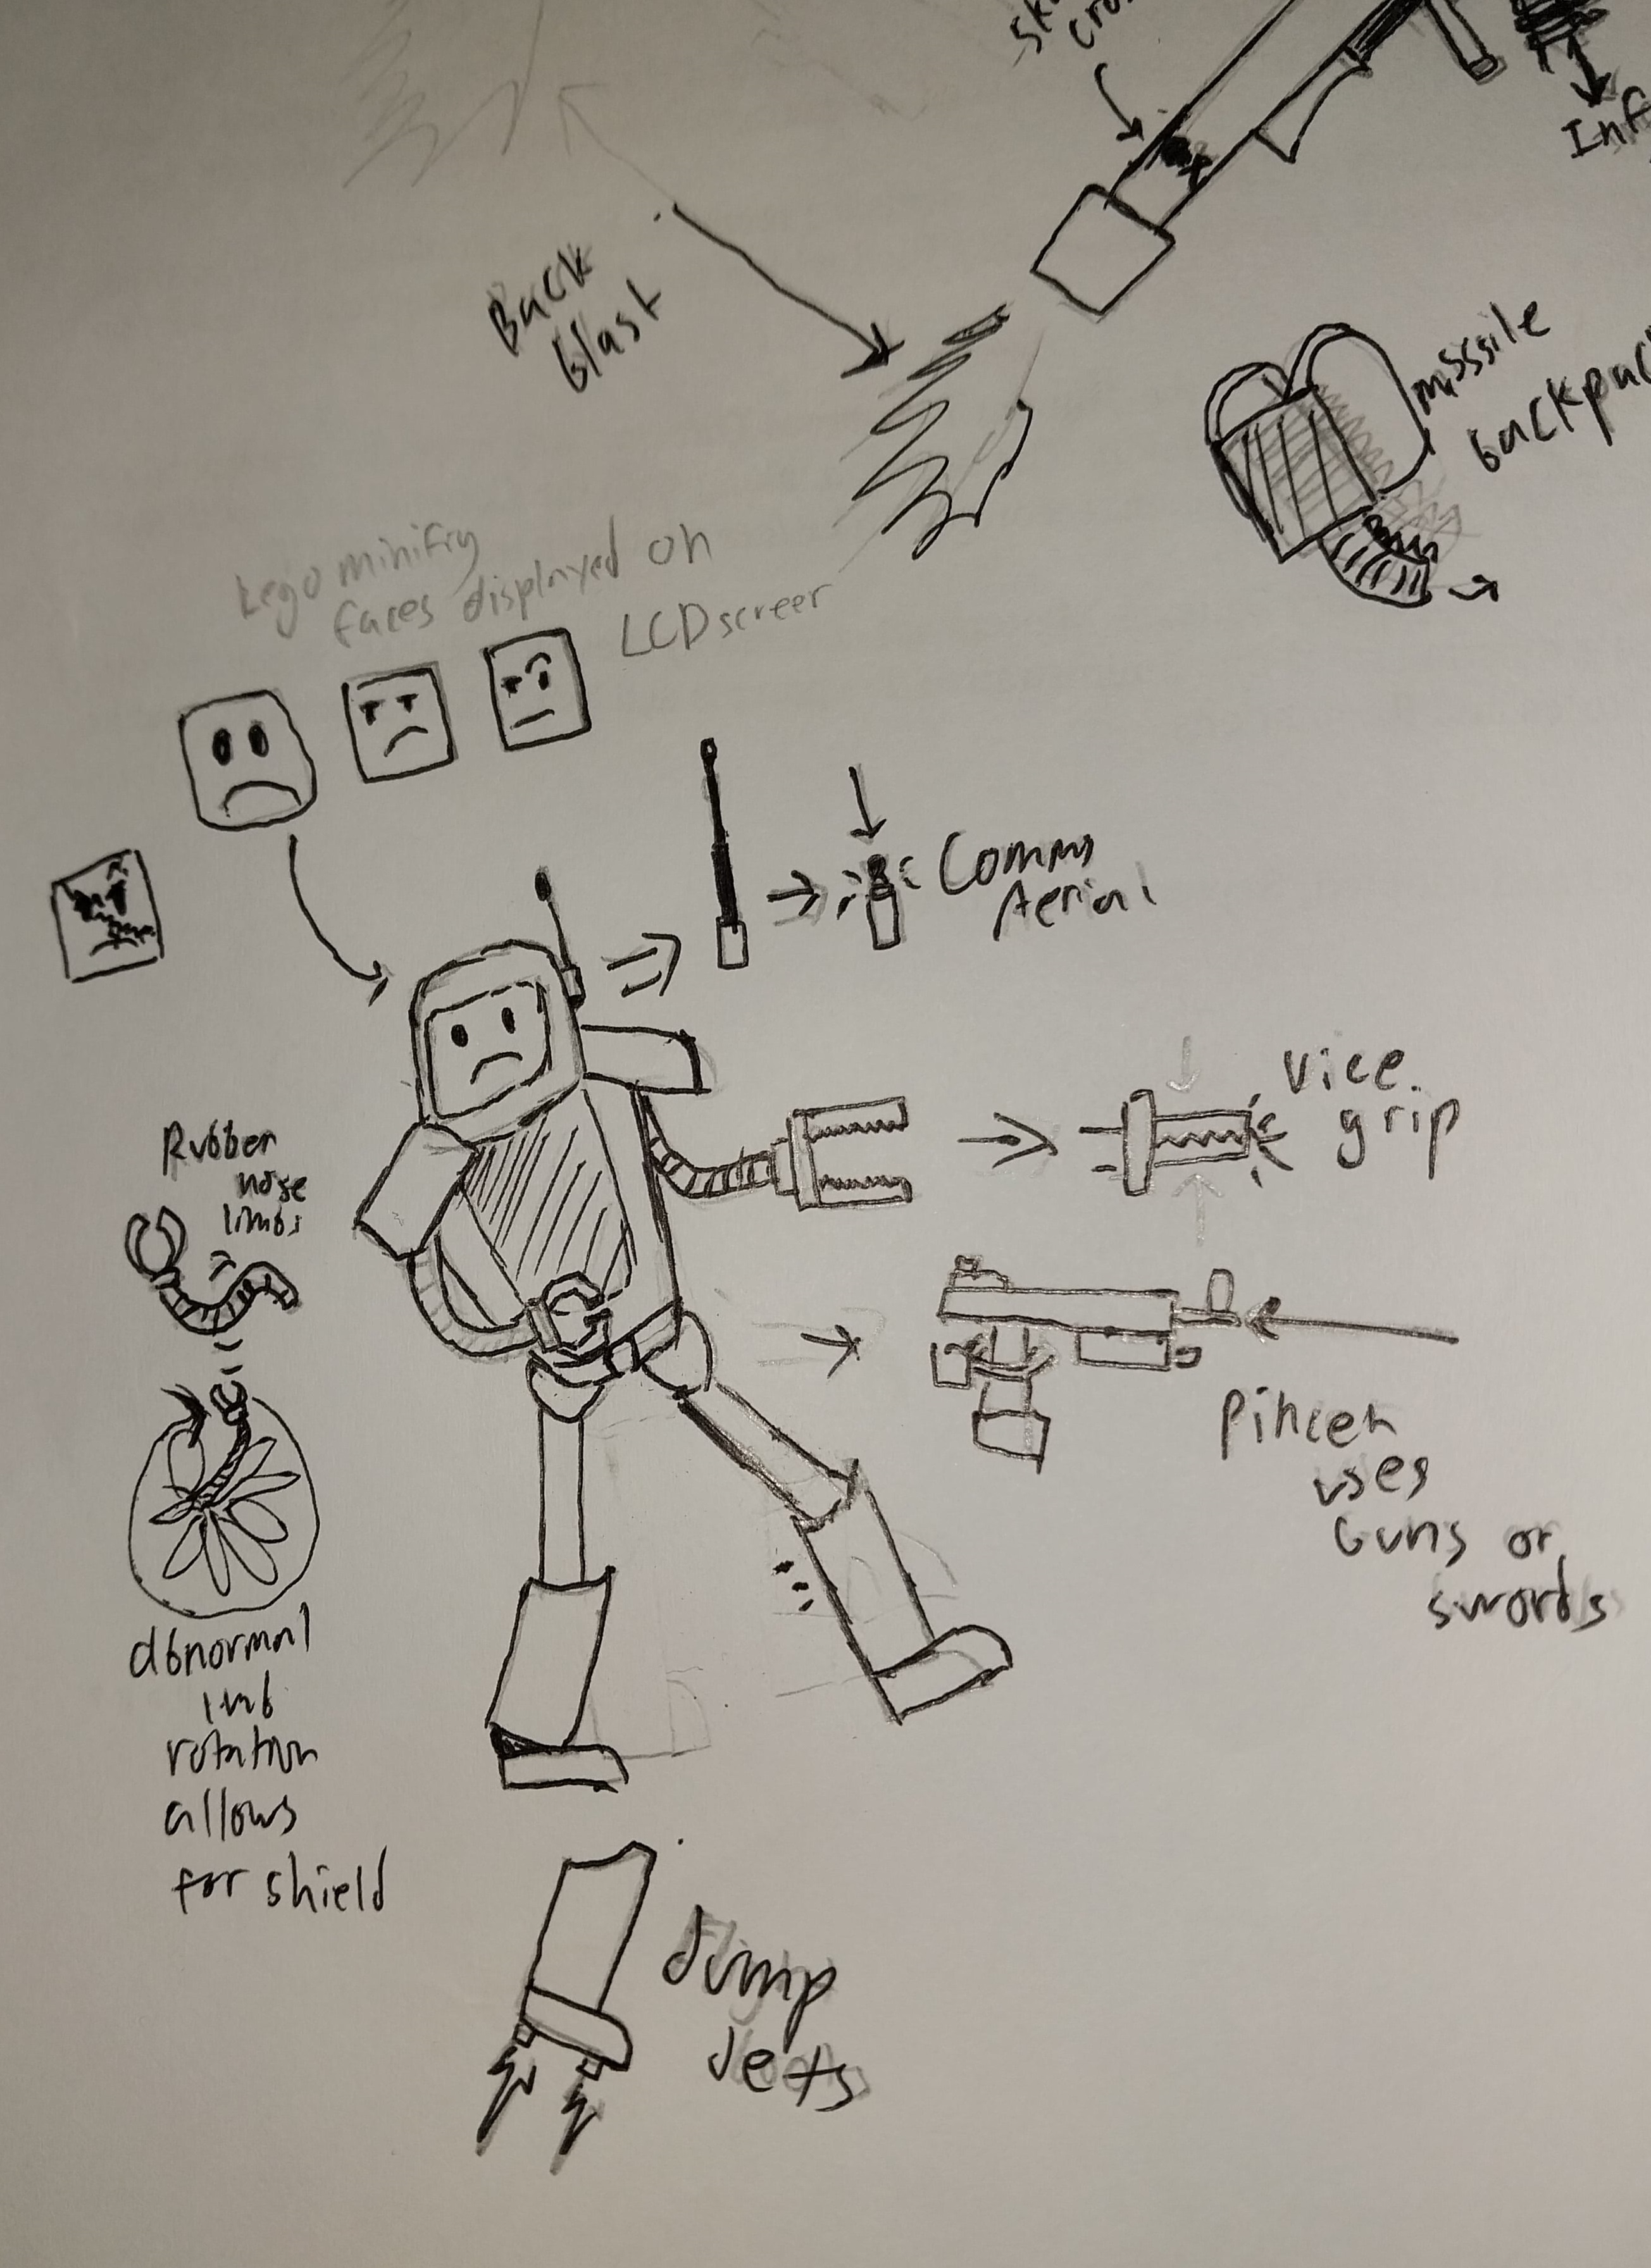 Back
blast
misssile
Lego minifig
faces displayed on
LCD screen
Comms
Aerial
Vice
grip
Rubber
hose
limbs
pincer
uses
Guns or
swords
abnormal
limb
rotation
allows
for shield
Jump
Jets